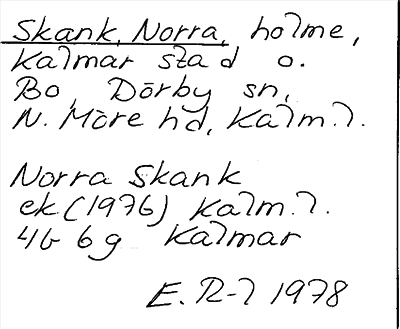 Skank, Norra, holme,
Kalmar stad o.
Bo, Dörby sn,
N. Möre hd, Kalm.l.
Norra Skank
ek (1976) Kalm.l.
4G 6g Kalmar
E. R-l 1978